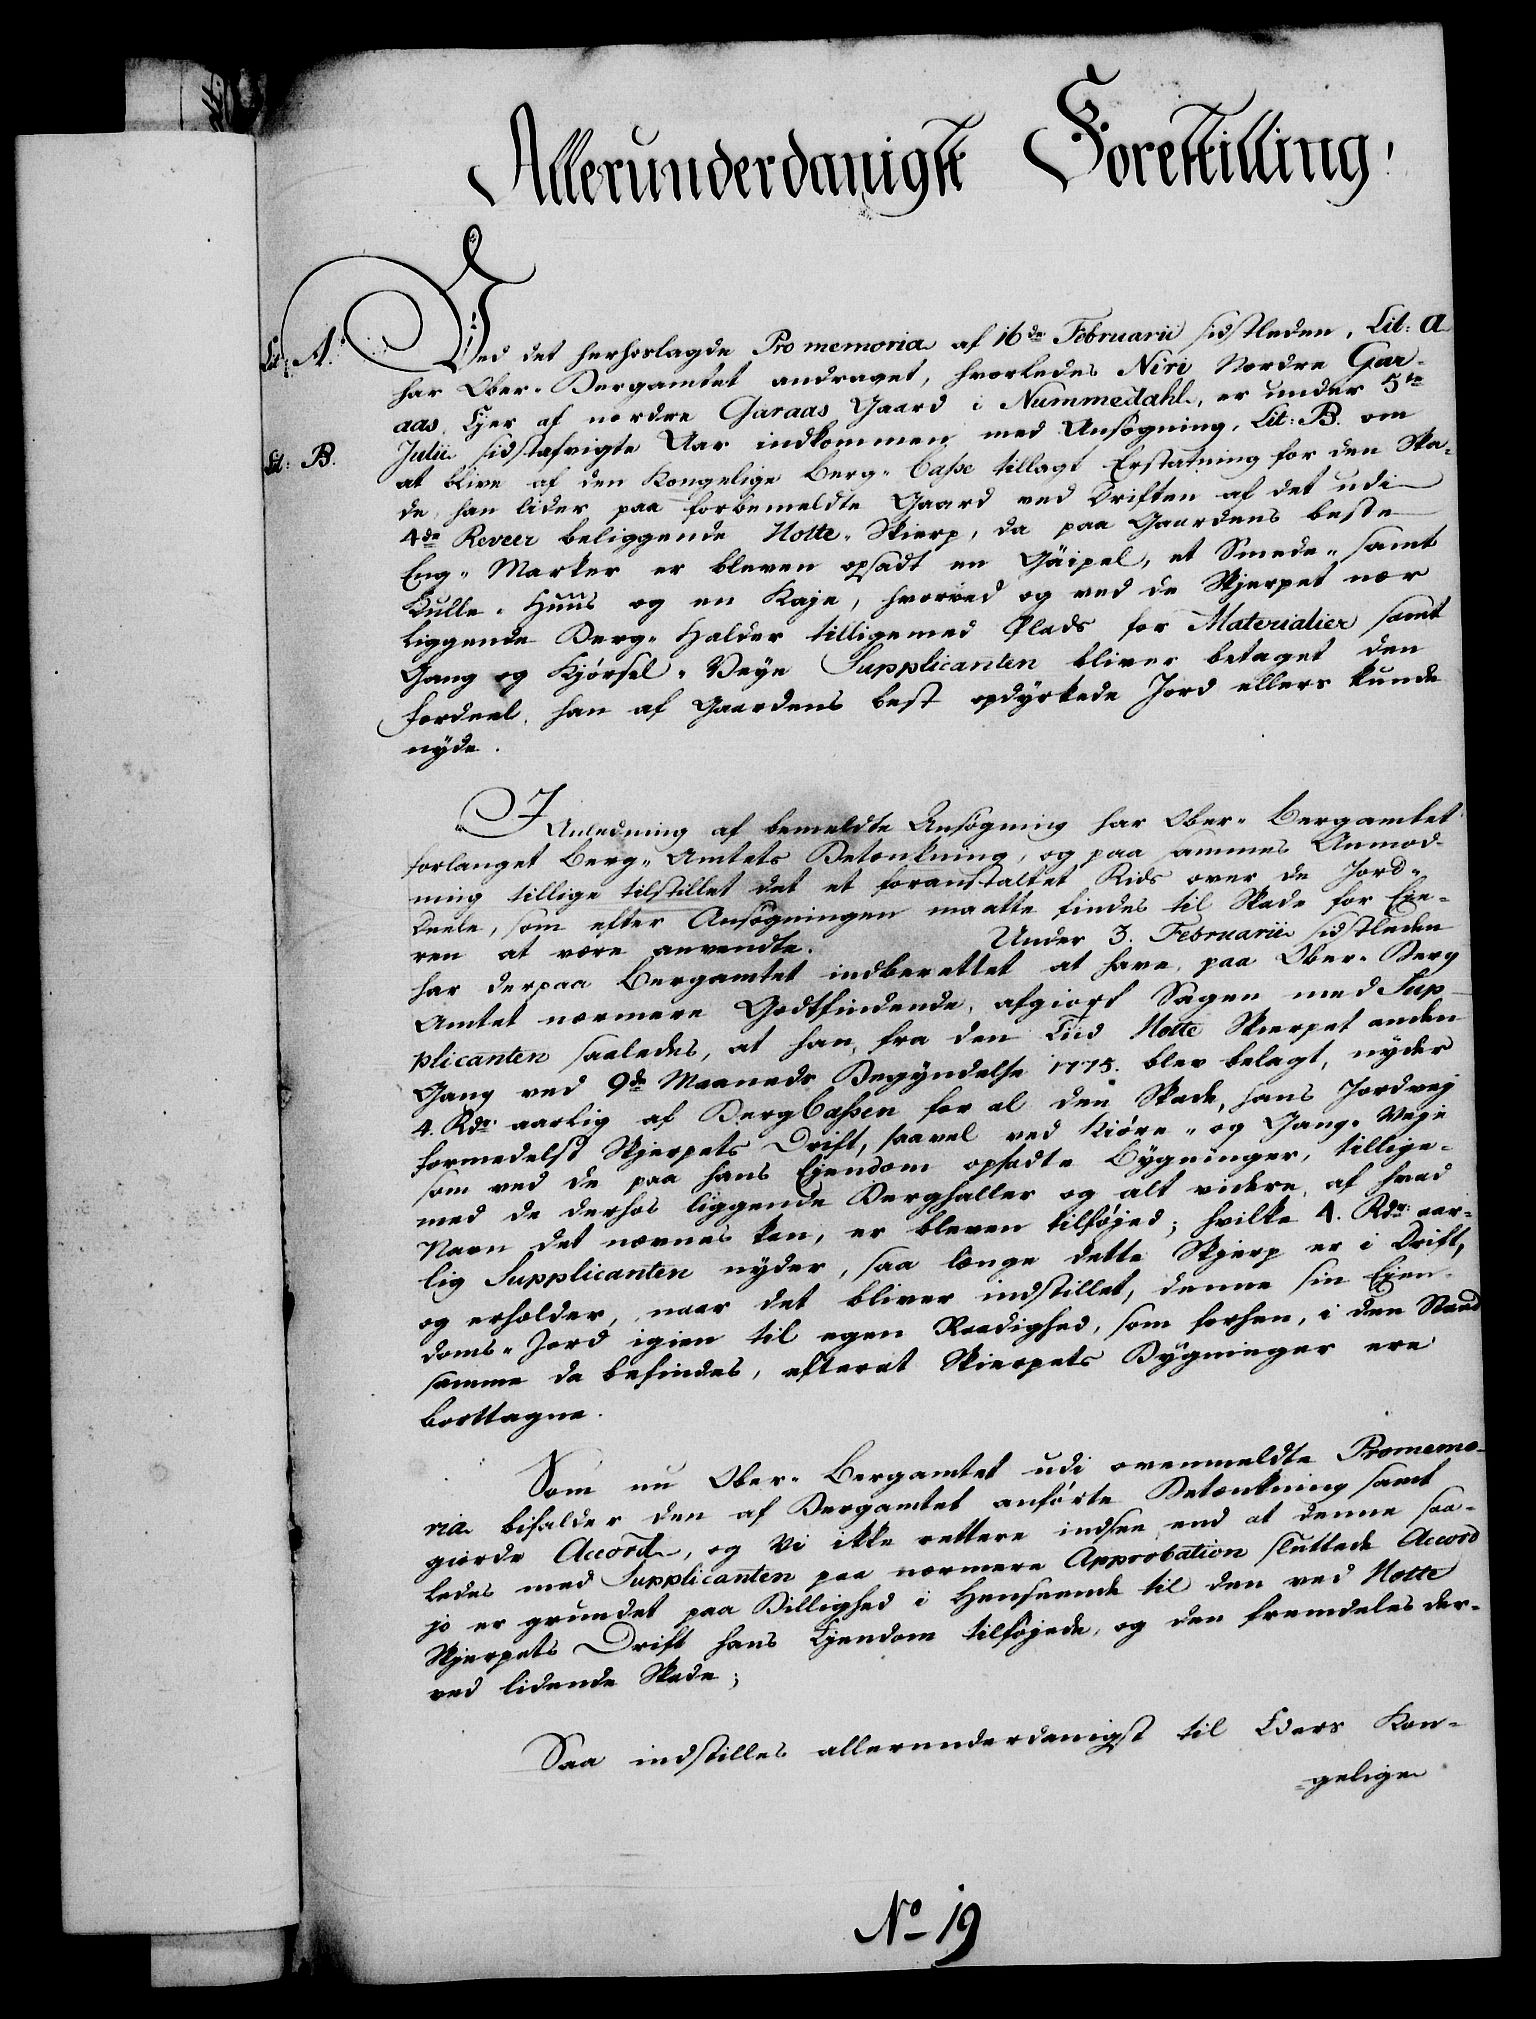 Allerunderdanigst Forestilling!
Lit: A. Ved det herhoslagde Pro memoria af 16de Februarii sidstleden, Lit: A
har Ober-Bergamtet andraget, hvorledes Niri Nordre Gar-
aas, Ejer af nordre Garaas Gaard i Nummedahl, er under 5te
Lit: B. Julii sidstafvigte Aar indkommen med Ansøgning, Lit: B. om
at blive af den Kongelige Berg-Casse tillagt Erstatning for den Ska-
de, han lider paa forbemeldte Gaard ved Driften af det udi
4de Reveer beliggende Notte-Skierp, da paa Gaardens beste
Eng-Marker er bleven opsadt en Gäipel, et Smede- samt
Kulle-Huus og en Kaje, hvorved og ved de Skjerpet nær
liggende Berg-Halder tilligemed Plads for Materialier samt
Gang og Kjørsel-Veye Supplicanten bliver betaget den
Fordeel, han af Gaardens best opdyrkede Jord ellers kunde
nyde.
I Anledning af bemeldte Ansøgning har Ober-Bergamtet
forlanget Berg-Amtets Betænkning, og paa sammes Anmod-
ning tillige tilstillet det et foranstaltet Rids over de Jord-
Deele, som efter Ansøgningen maatte findes til Skade for Eje-
ren at være anvendte. Under 3. Februarii sidstleden
har derpaa Bergamtet indberettet at have, paa Ober-Berg
Amtet nærmere Godtfindende, afgiort Sagen med Sup-
plicanten saaledes, at han, fra den Tiid Notte Skierpet anden
Gang ved 9de Maaneds Begyndelse 1775. blev belagt, nyder
4. Rdr. aarlig af BergCassen for al den Skade, hans Jordvej
formedelst Skjerpets Drift, saavel ved Kiøre- og Gang-Veje
som ved de paa hans Ejendom opsadte Bygninger, tillige-
med de derhos liggende Berghaller og alt videre, af hvad
Navn det nævnes kan, er bleven tilføjed; hvilke 4. Rdr. aar-
lig Supplicanten nyder, saa længe dette Skjerp er i Drift,
og erholder, naar det bliver indstillet, denne sin Ejen-
doms-Jord igien til egen Raadighed, som forhen, i den Stand
samme da befindes, efterat Skierpets Bygninger ere
borttagne.
Som nu Ober-Bergamtet udi ovenmeldte Promemo-
ria bifalder den af Bergamtet anførte Betænkning samt
giorde Accord, og Vi ikke rettere indsee, end at denne saa-
ledes med Supplicanten paa nærmere Approbation sluttede Accord
jo er grundet paa Billighed i Henseende til den ved Notte
Skjerpets Drift hans Ejendom tilføjede, og den fremdeles der-
ved lidende Skade;
Saa indstilles allerunderdanigst til Eders Kon-
=gelige
No 19